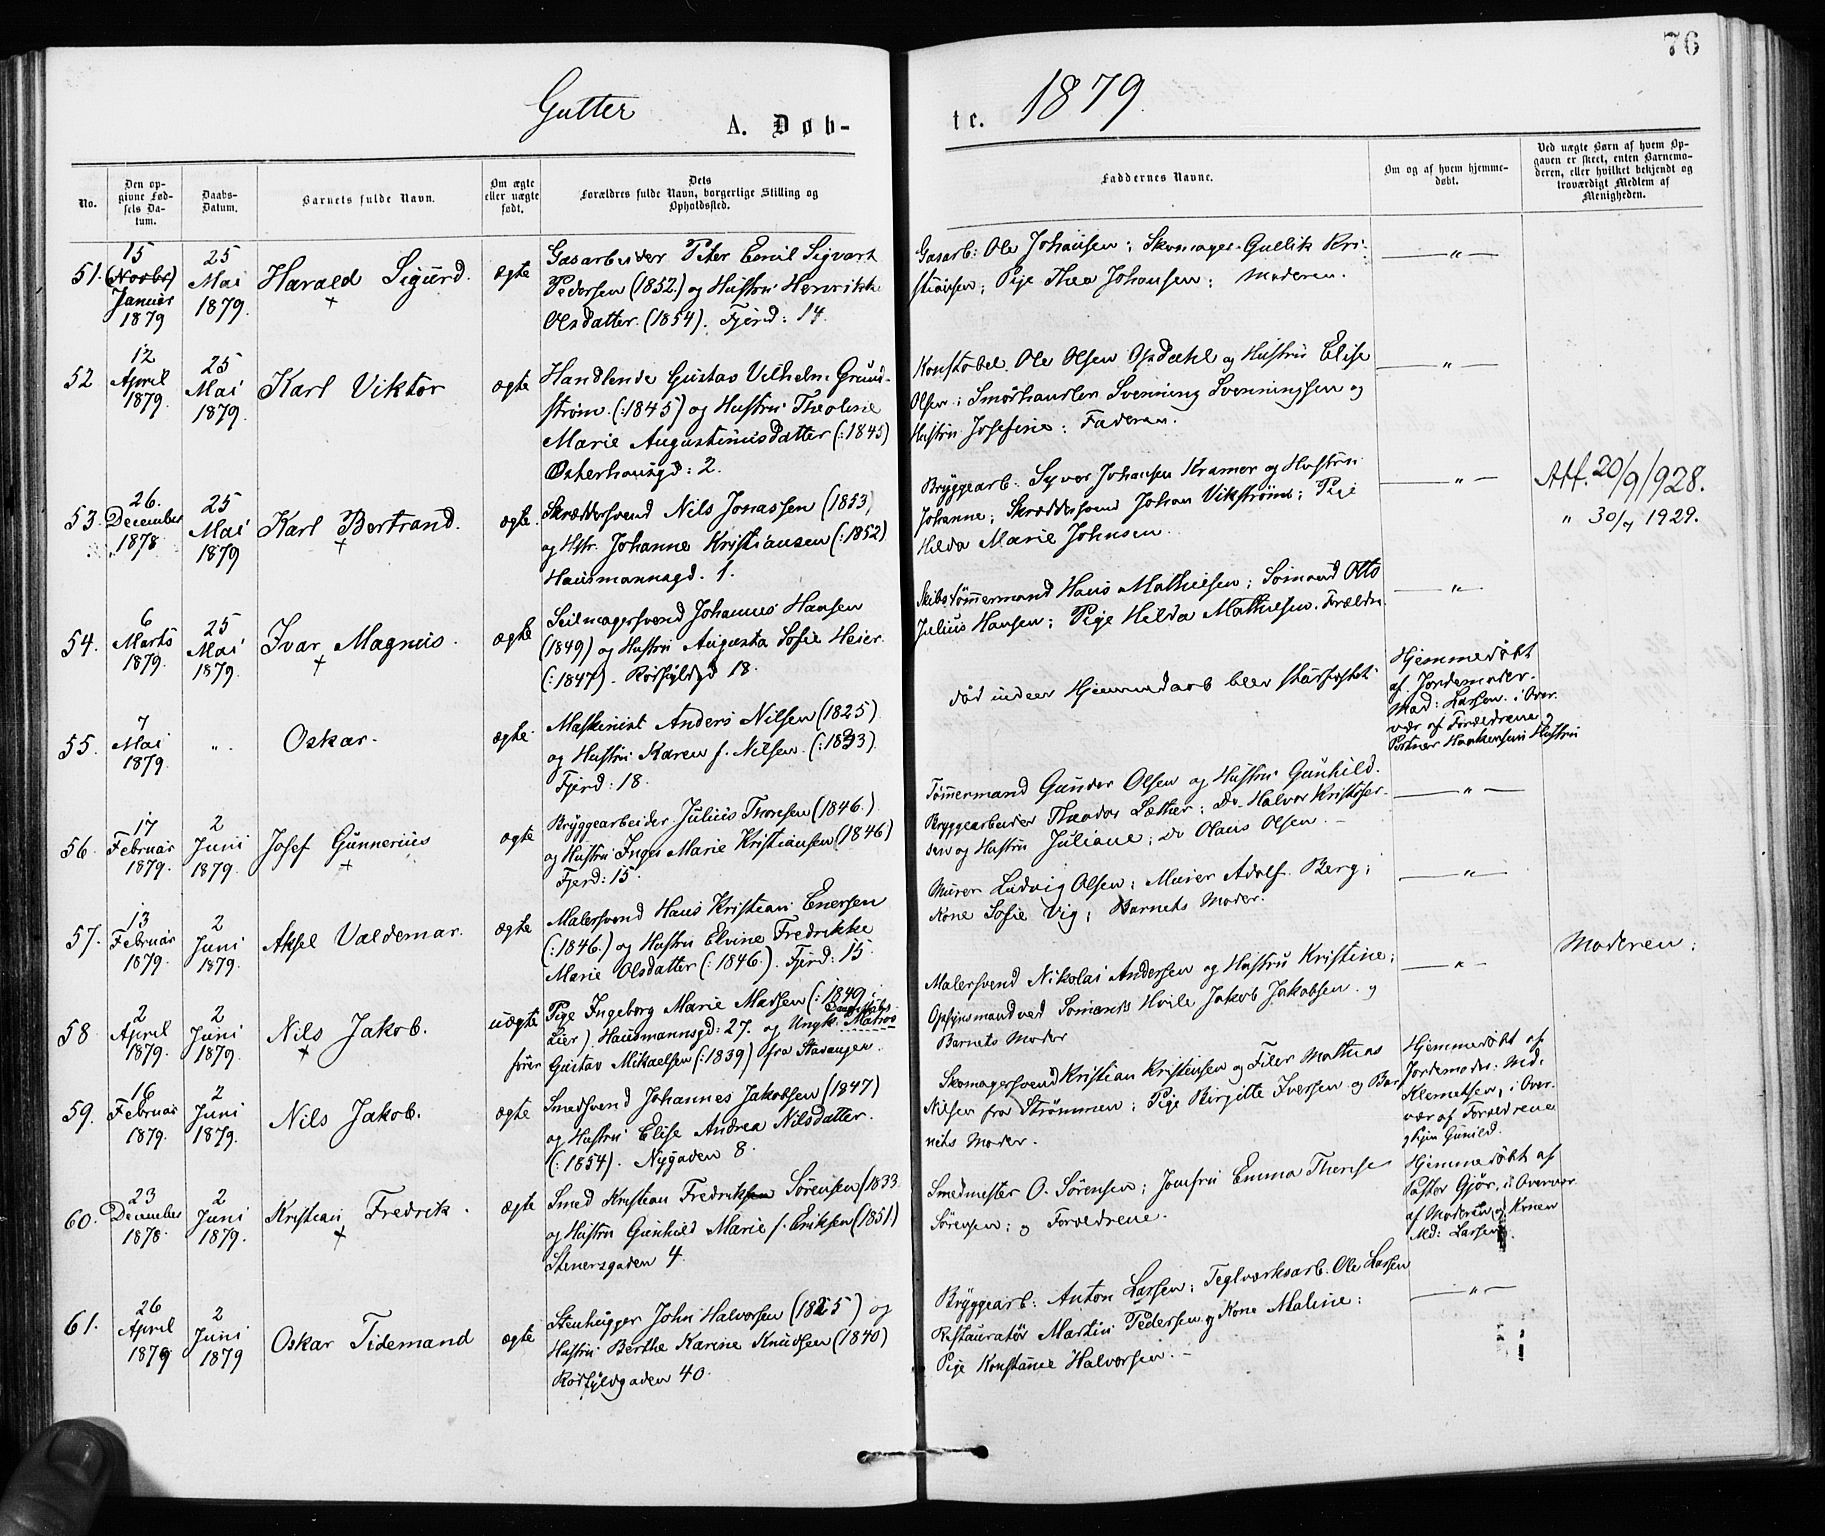 76
Gutter
A. Døb-
te.
1879.
No.
Den op-
givne Fød-
sels Da-
tum.
Daabs-
Datum.
Barnets fulde Navn.
Om ægte
eller uægte
født.
Dets
Forældres fulde Navn, borgerlige Stilling og
Opholdssted.
Faddernes Navne.
Om og af hvem hjemme-
døbt.
Ved uægte Børn af hvem Op-
gaven er skeet, enten Barnemo-
deren, eller hvilket bekjendt og
troværdigt Medlem af
Menigheden.
51.
15
Januar
1879
25
Mai
1879.
Harald Sigurd.
ægte
Gasarbeider Peter Emil Sigvart
Pedersen (1852.) og Hustru Henrikke
Olsdatter. (1854). Fjerd: 14.
Gasarb: Ole Johansen; Skomager Gullik Kri-
stiansen; Pige Thea Johansen; Moderen.
— " —
52
12
April
1879.
25
Mai
1879.
Karl Viktor
ægte
Handlende Gustav Vilhelm Grund-
strøm. (:1845) og Hustru Theoline
Marie Augustinusdatter (:1845)
Osterhausgd: 2.
Konstabel Ole Olsen Opdahl og Hustru Elise
Olsen; Smørhandler Svenning Svenningsen og
Hustru Josefine; Faderen.
— " —
53.
26.
December
1878
25
Mai
1879
Karl Bertrand.
ægte.
Skræddersvend Nils Jonassen (1853)
og Hstr. Johanne Kristiansen (:1852)
Hausmannsgd. 1.
Bryggearb: Syver Johansen Kramer og Hustru
Johanne; Skræddersvend Johan Vikstrøm; Pige
Hilda Marie Johnsen.
— " —
Att. 20/9/928.
" 30/4 1929.
54.
6
Marts
1879.
25
Mai
1879.
Ivar Magnus.
ægte
Seilmagersvend Johannes Hansen
(1849) og Hustru Augusta Sofie Heier
(:1847). Rødfyldgd 18.
Skibstømmermand Hans Mathiesen; Sømand Otto
Julius Hansen; Pige Hilda Mathiesen. Forældre
— " —
55.
7
Mai
1879.
"
Oskar.
ægte.
Maskinist Anders Nilsen (1825)
og Hustru Karen f. Nilsen. (:1833).
Fjerd: 18.
død inden Hjemmedaab blev stadfæstet.
Hjemmedøbt
af Jordemoder.
Mad: Larsen. i Over-
vær af Forældrene &
Hustru
56.
17
Februar
1879.
2
Juni
1879.
Josef Gunnerius
ægte
Bryggearbeider Julius Thoresen (1846.)
og Hustru Inger Marie Kristiansen (1846)
Fjerd: 15.
Tømmermand Gunder Olsen og Hustru Gunhild.
Bryggearbeider Theodor Læther; Do Halvor Kristofer-
sen og Hustru Juliane; Do Olaus Olsen. —
— " —
57.
13
Februar
1879.
2
Juni
1879.
Aksel Valdemar.
ægte
Malersvend Hans Kristian Enersen
(:1846.) og Hustru Elvine Fredrikke
Marie Olsdatter (:1846.). Fjerd: 15.
Murer Ludvig Olsen; Murer Adolf Berg;
Kone Sofie Vig; Barnets Moder.
— " —
58
2
April
1879.
2
Juni
1879.
Nils Jakob.
uægte
Pige Ingeborg Marie Madsen (:1849
Lier). Hausmannsgd: 27. og Ungk. Matros
Gustav Mikaelsen (:1839) fra Stavanger.
Malersvend Nikolai Andersen og Hustru Kristine;
Opsynsmand ved Sømands Hvile Jakob Jakobsen. og
Barnets Moder
— " —
Moderen:
59.
16
Februar
1879.
2
Juni
1879.
Nils Jakob.
ægte
Smedsvend Johannes Jakobsen (1847)
og Hustru Elise Andrea Nilsdatter.
(:1854). Nygaden 8.
Skomagersvend Kristian Kristensen og Filer Mathias
Nilsen fra Strømmen; Pige Birgitte Iversen og Bar-
nets Moder.
Hjemmedøbt af
Jordemoder: Md:
Klemetsen, i Over-
vær af Forældrene
og Pigen Gunild.
60.
23
December
1878.
2
Juni
1879.
Kristian Fredrik.
ægte
Smed Kristian Fredriksen Sørensen (1833
og Hustru Gunhild Marie f. Eriksen (1851)
Stenersgaden 4
Smedmester O. Sørensen; Jomfru Emma Therese
Sørensen; og Forældrene.
Hjemmedøbt af
Pastor Gjør, i Overvær
af Moderen og Konen
Md: Larsen.
61.
26
April
1879
2
Juni
1879
Oskar Tidemand
ægte
Stenhugger John Halvorsen (1825) og
Hustru Berthe Karine Knudsen (1840)
Rødfyldgaden 40.
Bryggearb: Anton Larsen; Teglværksarb. Ole Larsen
Restauratør Martin Pedersen og Kone Maline;
Pige Konstance Halvorsen. —
— " —